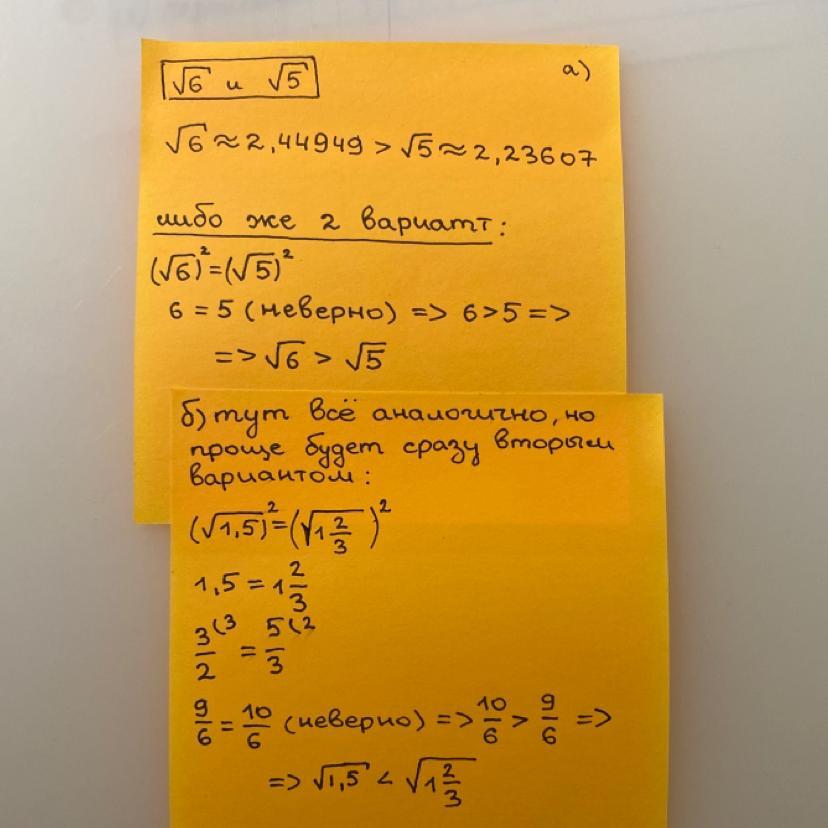 √6 и √5
а)
√6 ≈ 2,44949 > √5 ≈ 2,23607
либо же 2 вариатт:
(√6)² = (√5)²
6 = 5 (неверно) => 6 > 5 =>
=> √6 > √5
б) тут всё аналогично, но
проще будет сразу вторым
вариантом:
(√1,5)² = (√1 2/3)²
1,5 = 1 2/3
3/2 (3 = 5/3 (2
9/6 = 10/6 (неверно) => 10/6 > 9/6 =>
=> √1,5 < √1 2/3